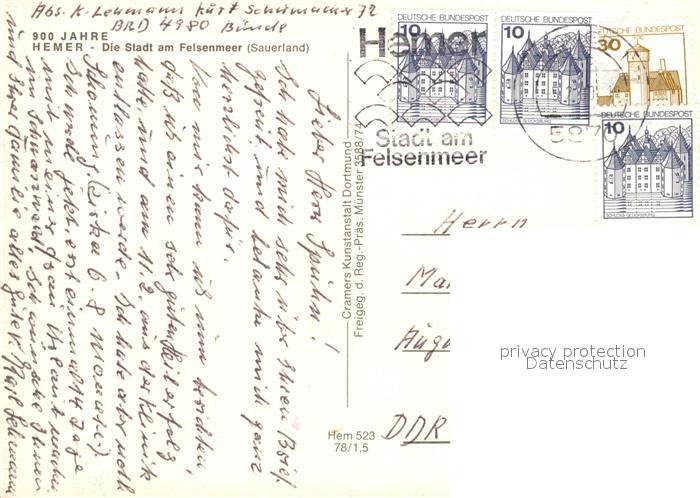 Abs. K. Lehmann Kurt Schumacher 72
BRD 4980 Bünde
900 JAHRE
HEMER - Die Stadt am Felsenmeer (Sauerland)
Lieber Herr Spühn!
Ich habe mich sehr über Ihren Brief
gefreut, und bedanke mich ganz
herzlichst dafür.
Von mir kann ich nun berichten,
daß ich einen sehr guten Heilerfolg
hatte und am 11.2. aus der Klinik
entlassen wurde. Ich habe aber noch
Schonung (circa 6-8 Monate).
So werde ich erst einmal 14 Tage
mit meiner Frau Urlaub machen
im Schwarzwald. Ich wünsche Ihnen
und Ihrer Familie alles Gute. Ihr Karl Lehmann
Cramers Kunstanstalt Dortmund
Freigeg. d. Reg.-Präs. Münster 3588/76
Hem 523
78/1,5
Hemer
Stadt am
Felsenmeer
5870
DEUTSCHE BUNDESPOST
10
SCHLOSS GLÜCKSBURG
DEUTSCHE BUNDESPOST
10
SCHLOSS GLÜCKSBURG
DEUTSCHE BUNDESPOST
30
DEUTSCHE BUNDESPOST
10
SCHLOSS GLÜCKSBURG
Herrn
DDR
privacy protection
Datenschutz